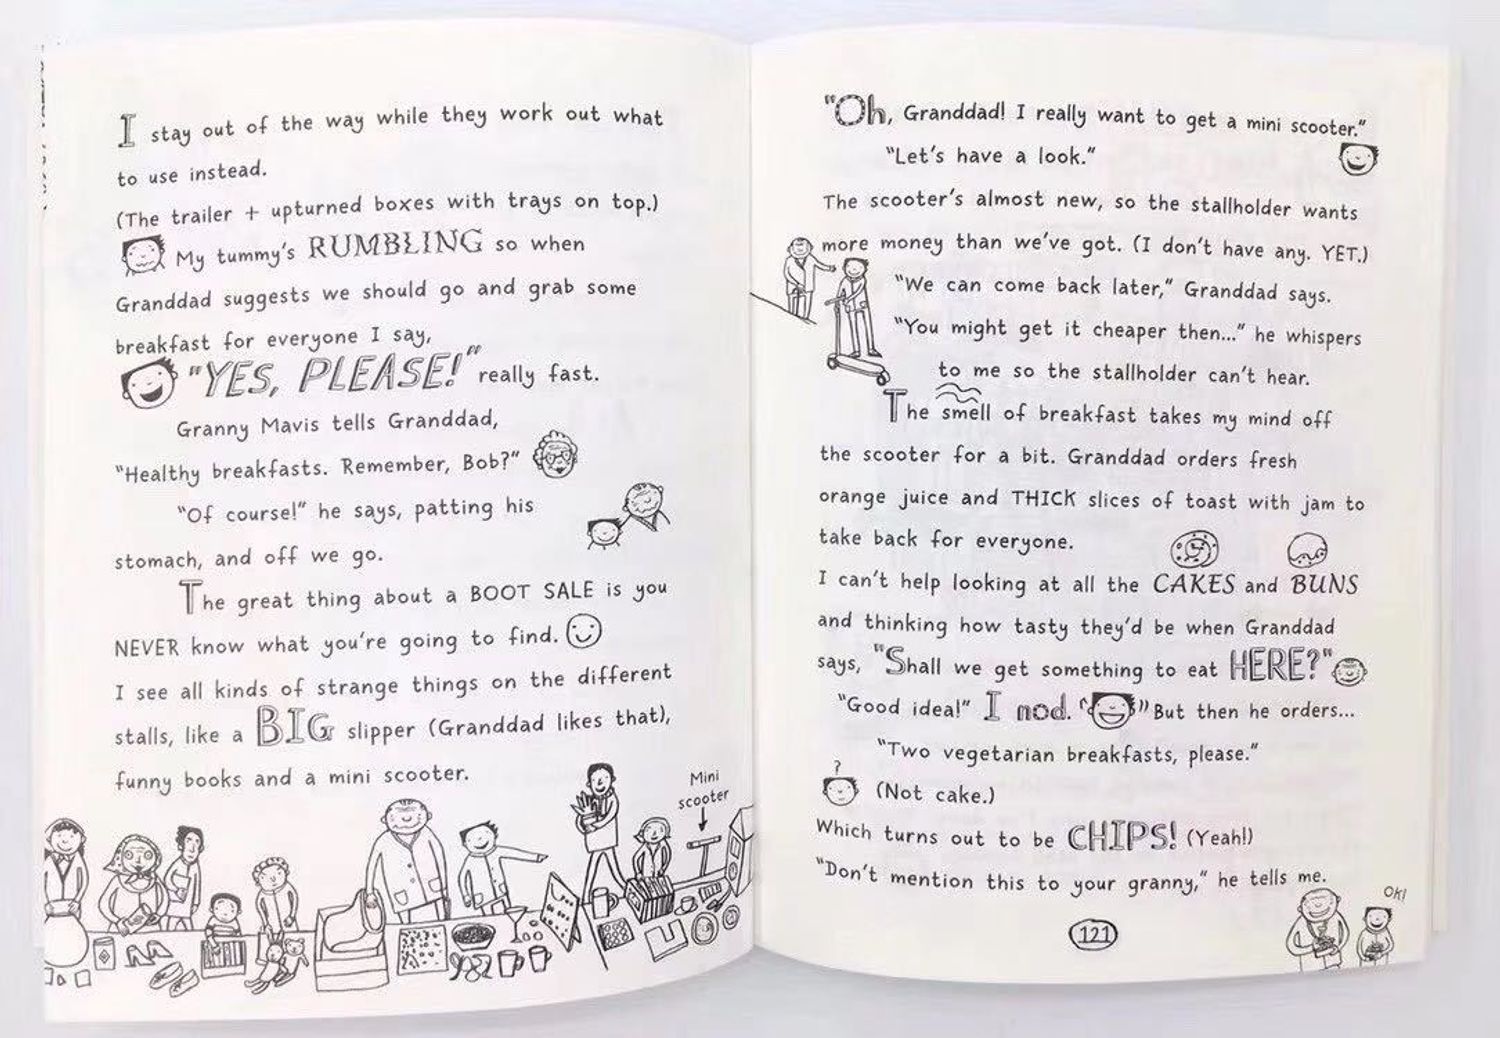 I stay out of the way while they work out what
to use instead.
(The trailer + upturned boxes with trays on top.)
My tummy's RUMBLING so when
Granddad suggests we should go and grab some
breakfast for everyone I say,
"YES, PLEASE!" really fast.
Granny Mavis tells Granddad,
"Healthy breakfasts. Remember, Bob?"
"Of course!" he says, patting his
stomach, and off we go.
The great thing about a BOOT SALE is you
NEVER know what you're going to find.
I see all kinds of strange things on the different
stalls, like a BIG slipper (Granddad likes that),
funny books and a mini scooter.
Mini
scooter
"Oh, Granddad! I really want to get a mini scooter."
"Let's have a look."
The scooter's almost new, so the stallholder wants
more money than we've got. (I don't have any. YET.)
"We can come back later," Granddad says.
"You might get it cheaper then..." he whispers
to me so the stallholder can't hear.
The smell of breakfast takes my mind off
the scooter for a bit. Granddad orders fresh
orange juice and THICK slices of toast with jam to
take back for everyone.
I can't help looking at all the CAKES and BUNS
and thinking how tasty they'd be when Granddad
says, "Shall we get something to eat HERE?"
"Good idea!" I nod. But then he orders...
"Two vegetarian breakfasts, please."
?
(Not cake.)
Which turns out to be CHIPS! (Yeah!)
"Don't mention this to your granny," he tells me.
OK!
121